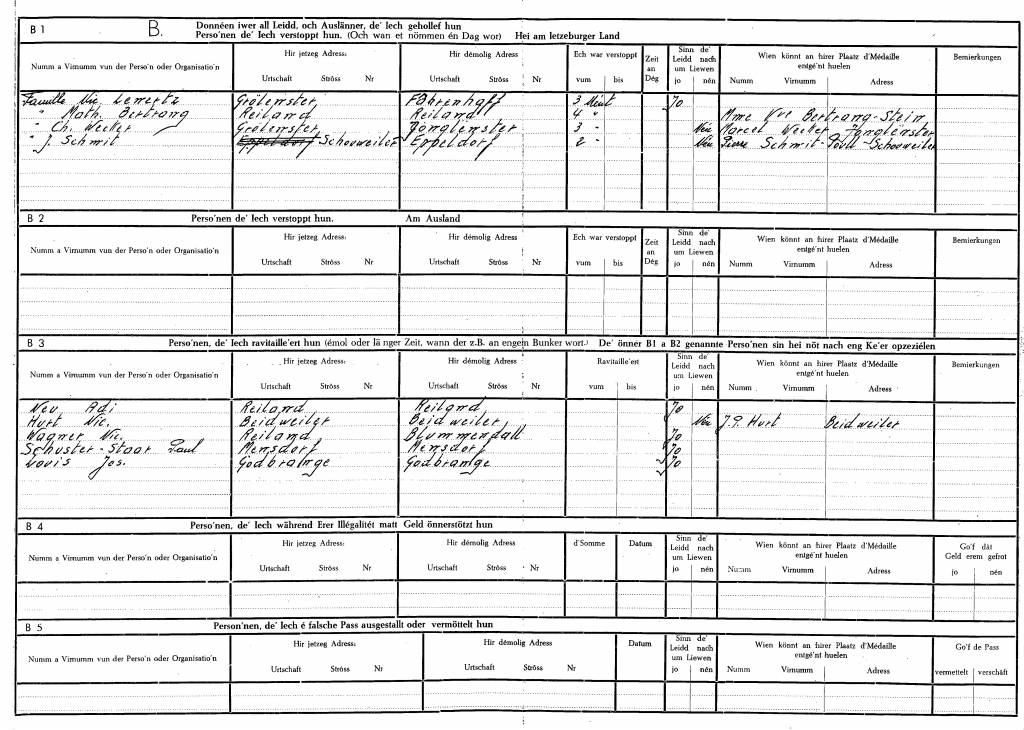 B 1 B. Donnéen iwer all Leidd, och Auslänner, de' Iech gehollef hun
Perso'nen de' Iech verstoppt hun. (Och wan et nömmen én Dag wor) Hei am letzeburger Land
Numm a Virnumm vun der Perso'n oder Organisatio'n
Hir jetzeg Adress:
Urtschaft Ströss Nr
Hir démolig Adress
Urtschaft Ströss Nr
Ech war verstoppt
vum bis
Zeit an Dég
Sinn de' Leidd nach um Liewen
jo nén
Wien könnt an hirer Plaatz d'Médaille entgé'nt huelen
Numm Virnumm Adress
Bemierkungen
Famille Nic. Lemertz Grölenster Föhrenhaff 3 Jo
" Math. Bertrang Reiland Reiland 4 " Mme Vve Bertrang-Stein
" Ch. Weeker Grölenster Jonglënster 3 - Nén Marcel Weeker Jonglënster
" J. Schmit Eppeldorf Schouweiler Eppeldorf 2 - Nén Pierre Schmit- Schouweiler
B 2 Perso'nen de' Iech verstoppt hun. Am Ausland
Numm a Virnumm vun der Perso'n oder Organisatio'n
Hir jetzeg Adress:
Urtschaft Ströss Nr
Hir démolig Adress
Urtschaft Ströss Nr
Ech war verstoppt
vum bis
Zeit an Dég
Sinn de' Leidd nach um Liewen
jo nén
Wien könnt an hirer Plaatz d'Médaille entgé'nt huelen
Numm Virnumm Adress
Bemierkungen
B 3 Perso'nen, de' Iech ravitaille'ert hun (émol oder lä nger Zeit, wann der z.B. an engem Bunker wort.) De' önner B1 a B2 genannte Perso'nen sin hei nöt nach eng Ke'er opzeziélen
Numm a Virnumm vun der Perso'n oder Organisatio'n
Hir jetzeg Adress:
Urtschaft Ströss Nr
Hir démolig Adress
Urtschaft Ströss Nr
Ravitaille'ert
vum bis
Sinn de' Leidd nach um Liewen
jo nén
Wien könnt an hirer Plaatz d'Médaille entgé'nt huelen
Numm Virnumm Adress
Bemierkungen
Neu Adi Reiland Reiland Jo
Hurt Nic. Beidweiler Beidweiler Nén J.P. Hurt Beidweiler
Wagner Nic. Reiland Blummendall Jo
Schuster-Staar Paul Mensdorf Mensdorf Jo
Louis Jos. Godbrange Godbrange Jo
B 4 Perso'nen, de' Iech während Erer Illégalitét matt Geld önnerstötzt hun
Numm a Virnumm vun der Perso'n oder Organisatio'n
Hir jetzeg Adress:
Urtschaft Ströss Nr
Hir démolig Adress
Urtschaft Ströss Nr
d'Somme
Datum
Sinn de' Leidd nach um Liewen
jo nén
Wien könnt an hirer Plaatz d'Médaille entgé'nt huelen
Numm Virnumm Adress
Go'f dât Geld erem gefrot
jo nén
B 5 Person'nen, de' Iech é falsche Pass ausgestallt oder vermöttelt hun
Numm a Virnumm vun der Perso'n oder Organisatio'n
Hir jetzeg Adress:
Urtschaft Ströss Nr
Hir démolig Adress
Urtschaft Ströss Nr
Datum
Sinn de' Leidd nach um Liewen
jo nén
Wien könnt an hirer Plaatz d'Médaille entgé'nt huelen
Numm Virnumm Adress
Go'f de Pass
vermettelt verschâft